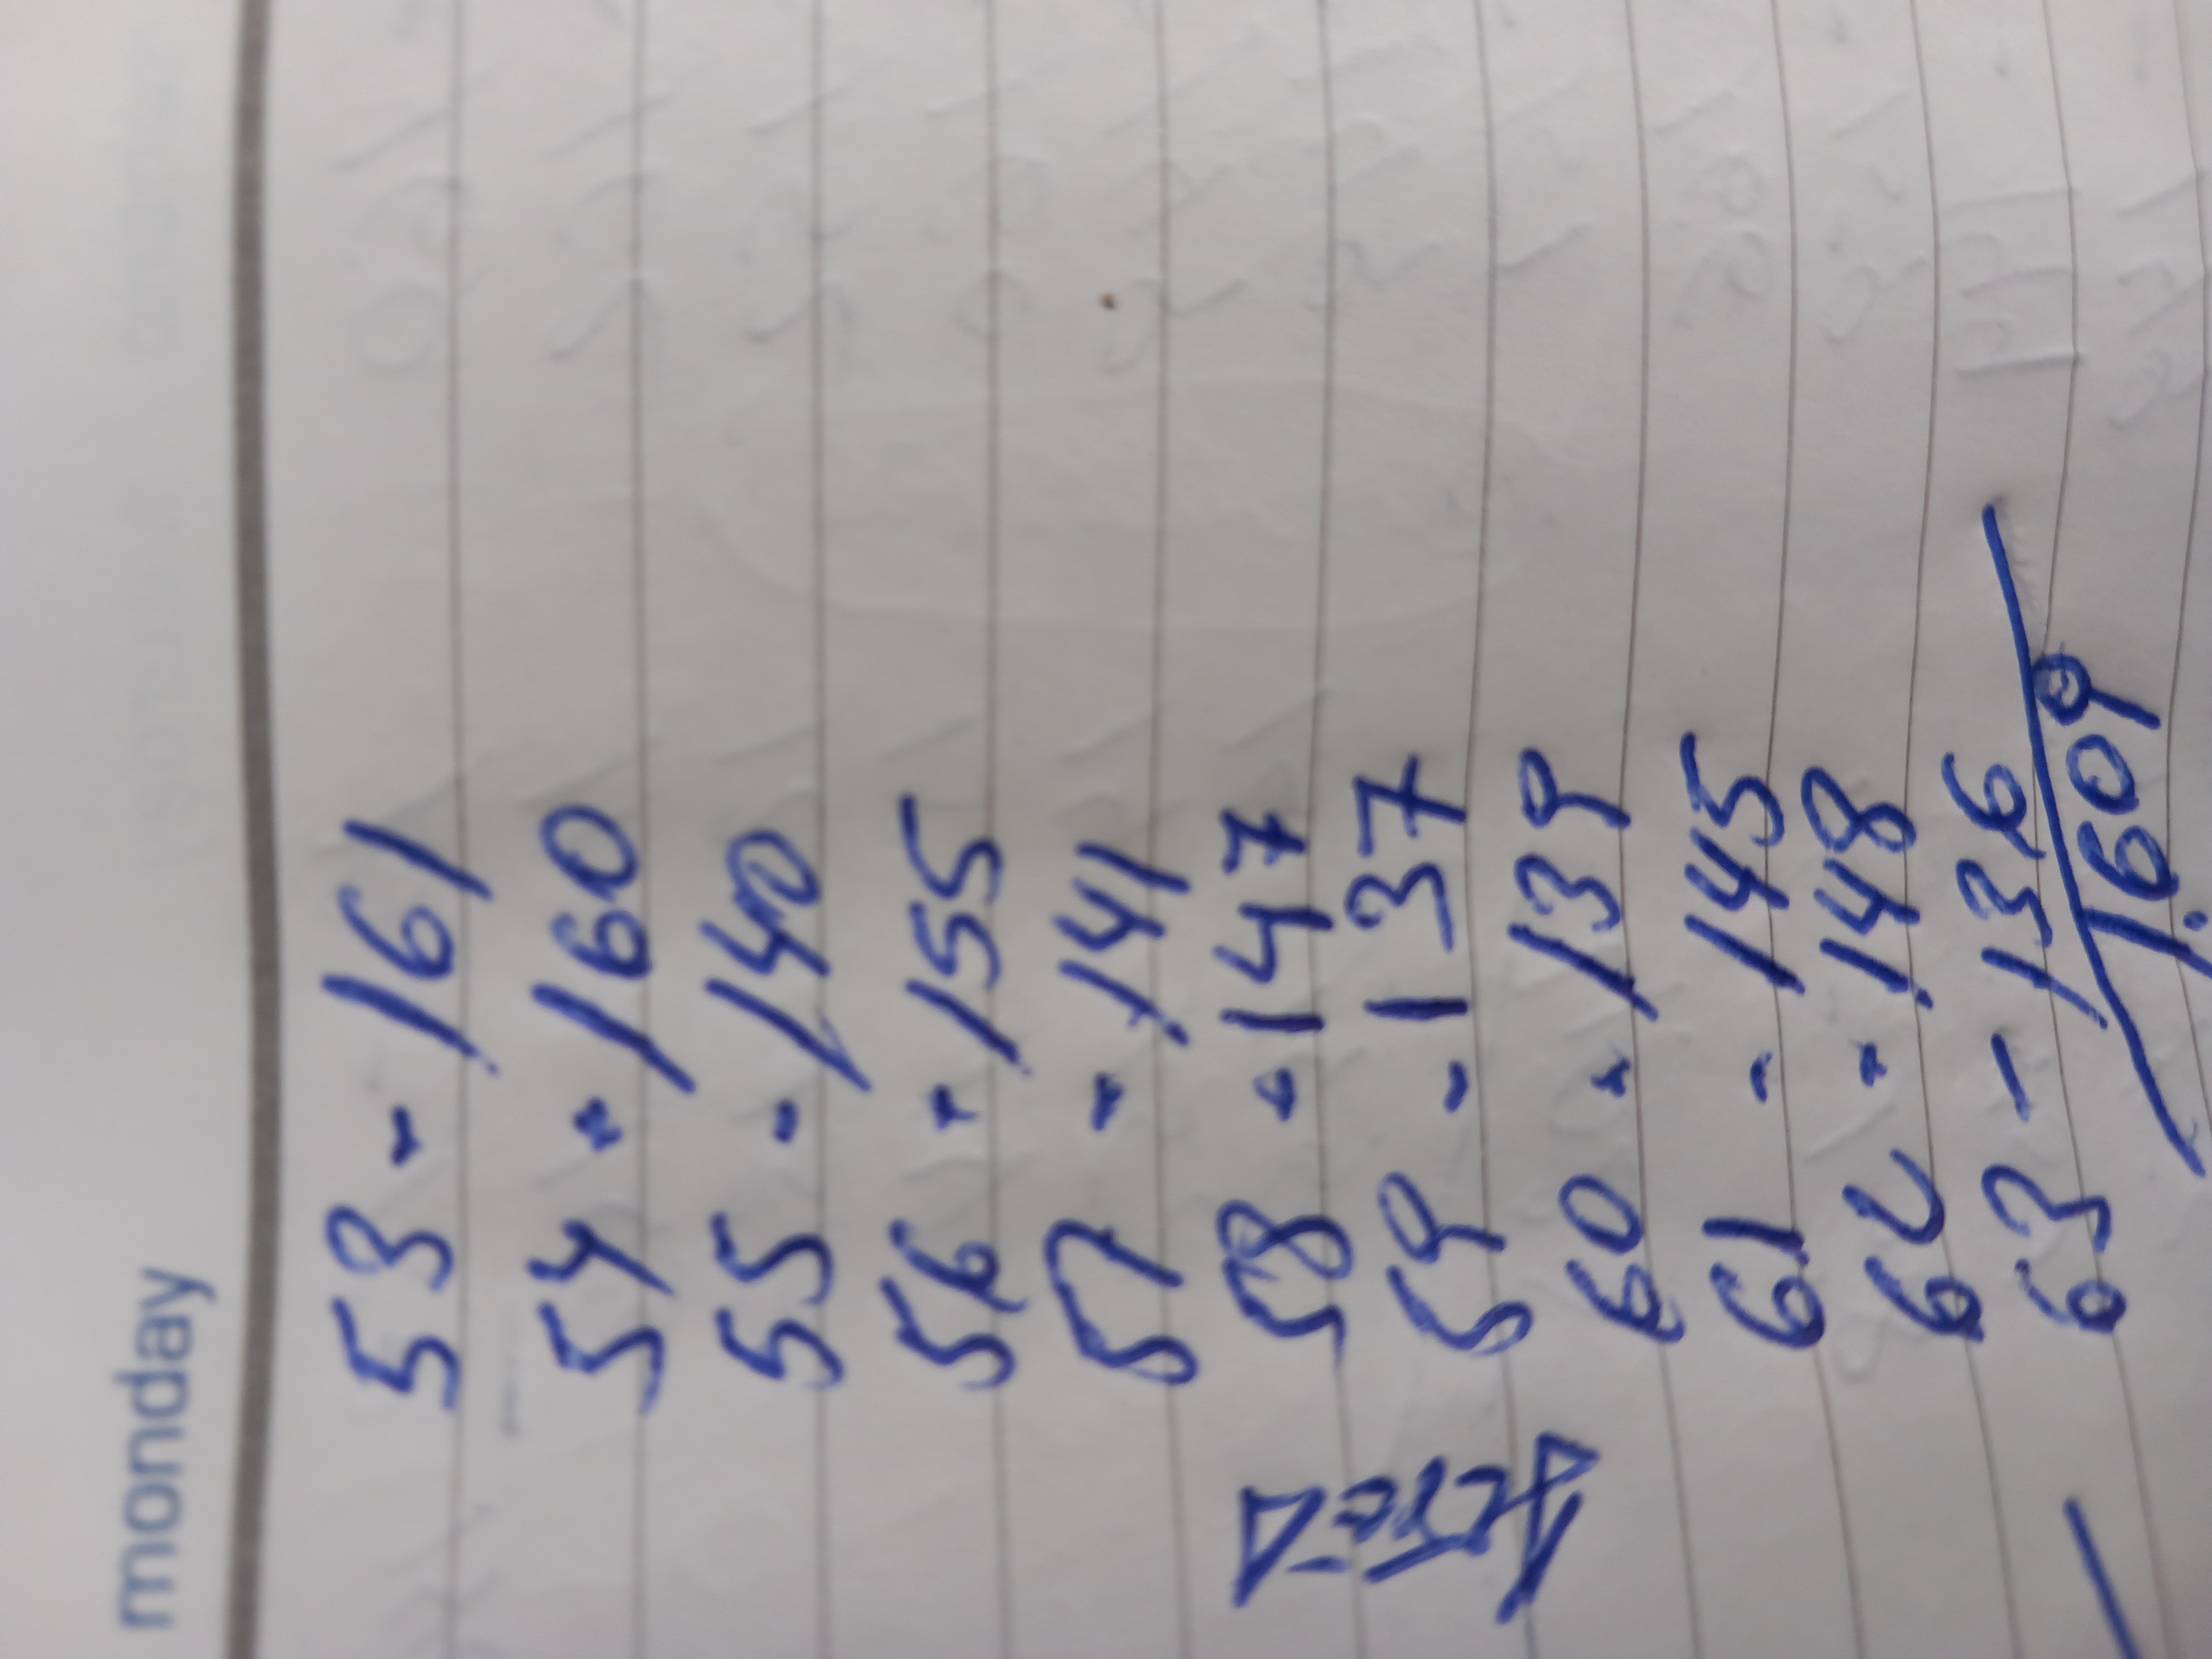 monday
53 - 161
54 - 160
55 - 140
56 - 155
57 - 141
58 - 147
59 - 137
60 - 139
61 - 145
62 - 148
63 - 136
1.609